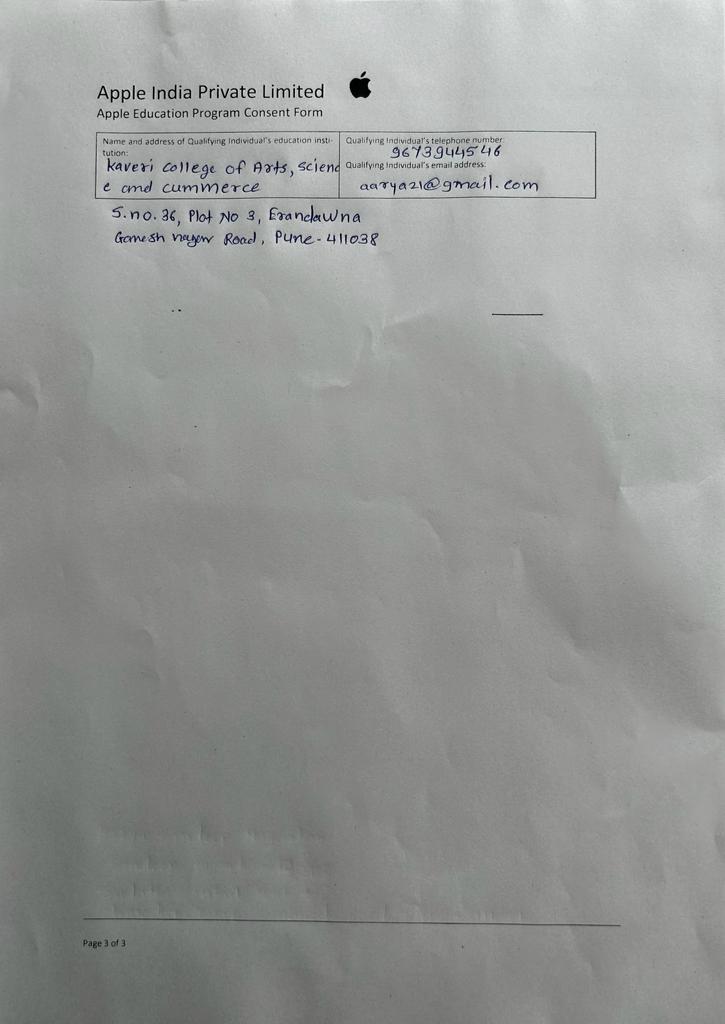 Apple India Private Limited
Apple Education Program Consent Form
Name and address of Qualifying Individual's education insti-
tution:
Kaveri college of Arts, scienc
e and cummerce
Qualifying Individual's telephone number:
9673944546
Qualifying Individual's email address:
aarya21@gmail.com
S.no. 36, Plot No 3, Erandawna
Ganesh nagar Road, Pune-411038
Page 3 of 3